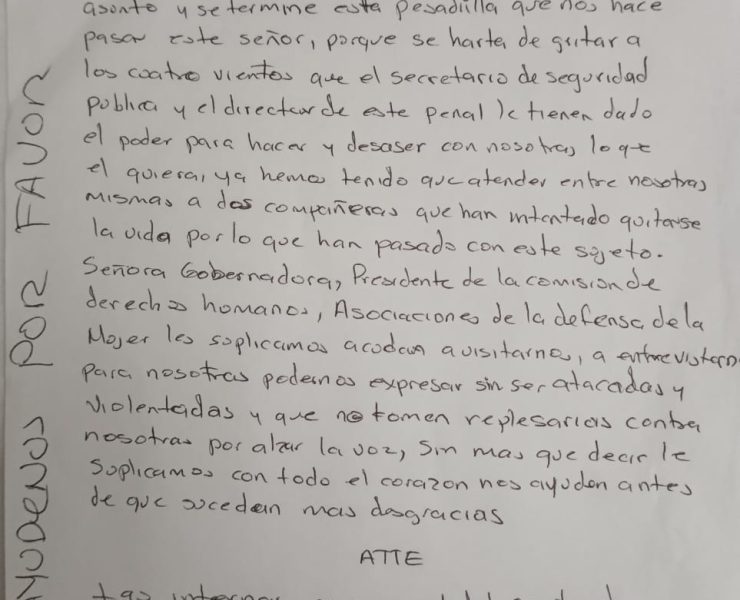 asonto y se termine esta pesadilla que nos hace
pasar este señor, porque se harta de gritar a
los cuatro vientos que el secretario de seguridad
publica y el director de este penal le tienen dado
el poder para hacer y desaser con nosotras lo qe
el quiera, ya hemos tenido que atender entre nosotras
mismas a dos compañeras que han intentado quitarse
la vida por lo que han pasado con este sujeto.
Señora Gobernadora, Presidente de la comision de
derechos humanos, Asociaciones de la defensa de la
Mujer les suplicamos acudan a visitarnos, a entrevistarn
para nosotras podernos expresar sin ser atacadas y
violentadas y que no tomen replesarias contra
nosotras por alzar la voz, sin mas que decir le
suplicamos con todo el corazon nos ayuden antes
de que sucedan mas desgracias
ATTE
las internas
YUDENOS POR FAVOR